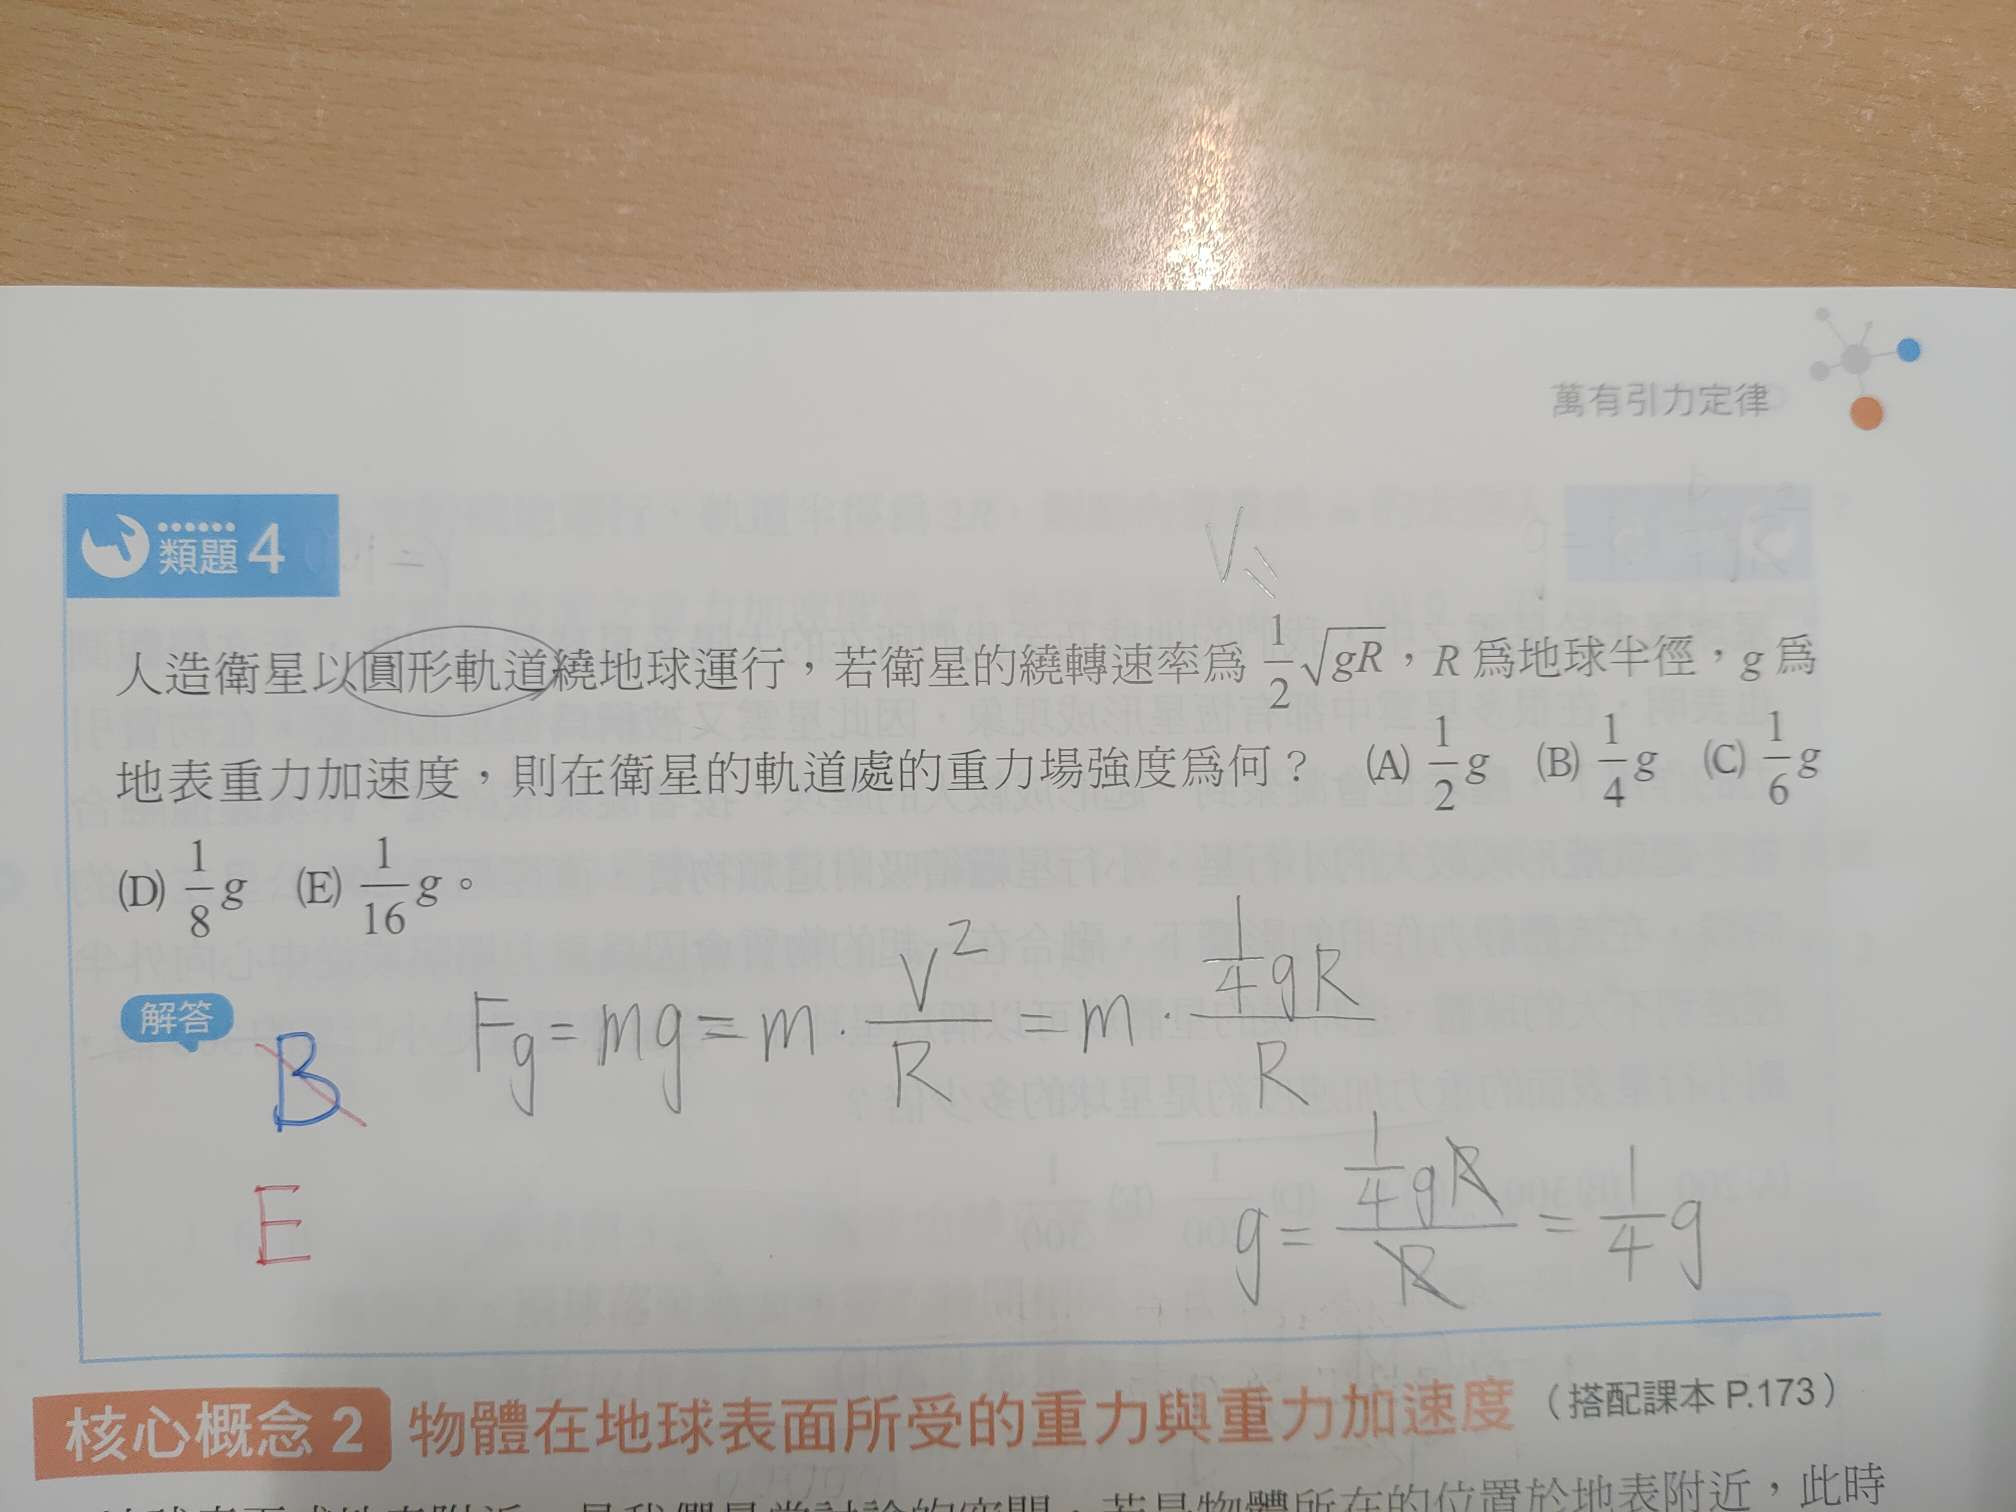 萬有引力定律
類題 4
V
人造衛星以圓形軌道繞地球運行，若衛星的繞轉速率為 1/2 √gR，R 為地球半徑，g 為
地表重力加速度，則在衛星的軌道處的重力場強度為何？ (A) 1/2 g (B) 1/4 g (C) 1/6 g
(D) 1/8 g (E) 1/16 g。
解答
B
Fg = mg = m · V²/R = m · 1/4 gR / R
E
g = 1/4 gR / R = 1/4 g
核心概念 2 物體在地球表面所受的重力與重力加速度（搭配課本 P.173）
此時